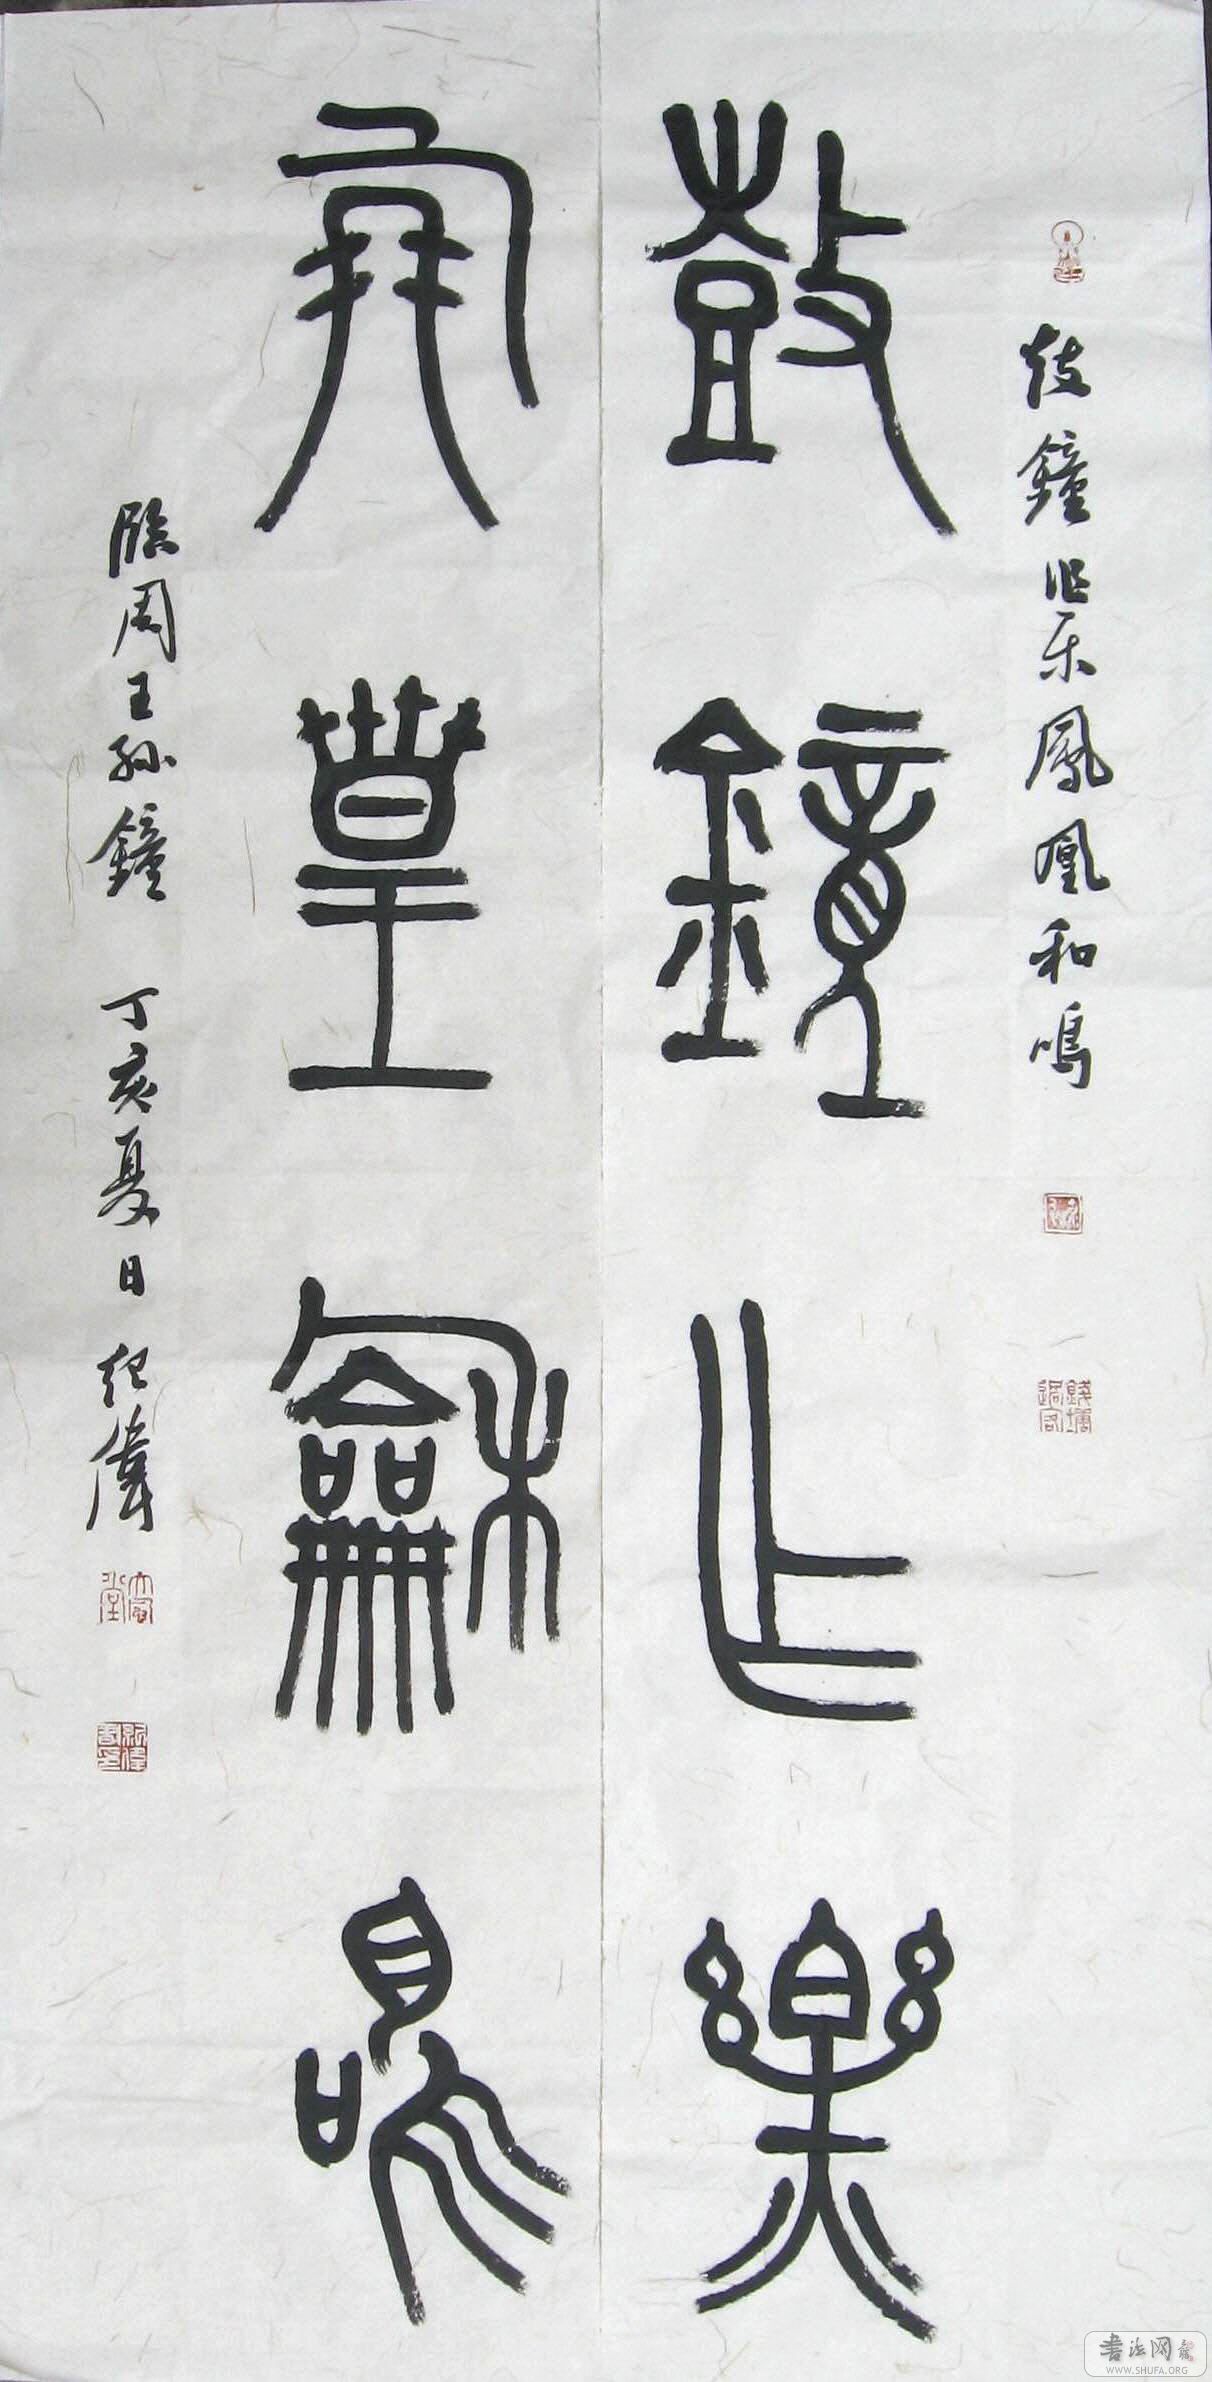 鼓鐘作樂鳳凰和鳴
鼓鐘作樂
鳳皇龢鳴
臨周王孫鐘 丁亥夏日紀偉
錢塘過客
書法网
WWW.SHUFA.ORG